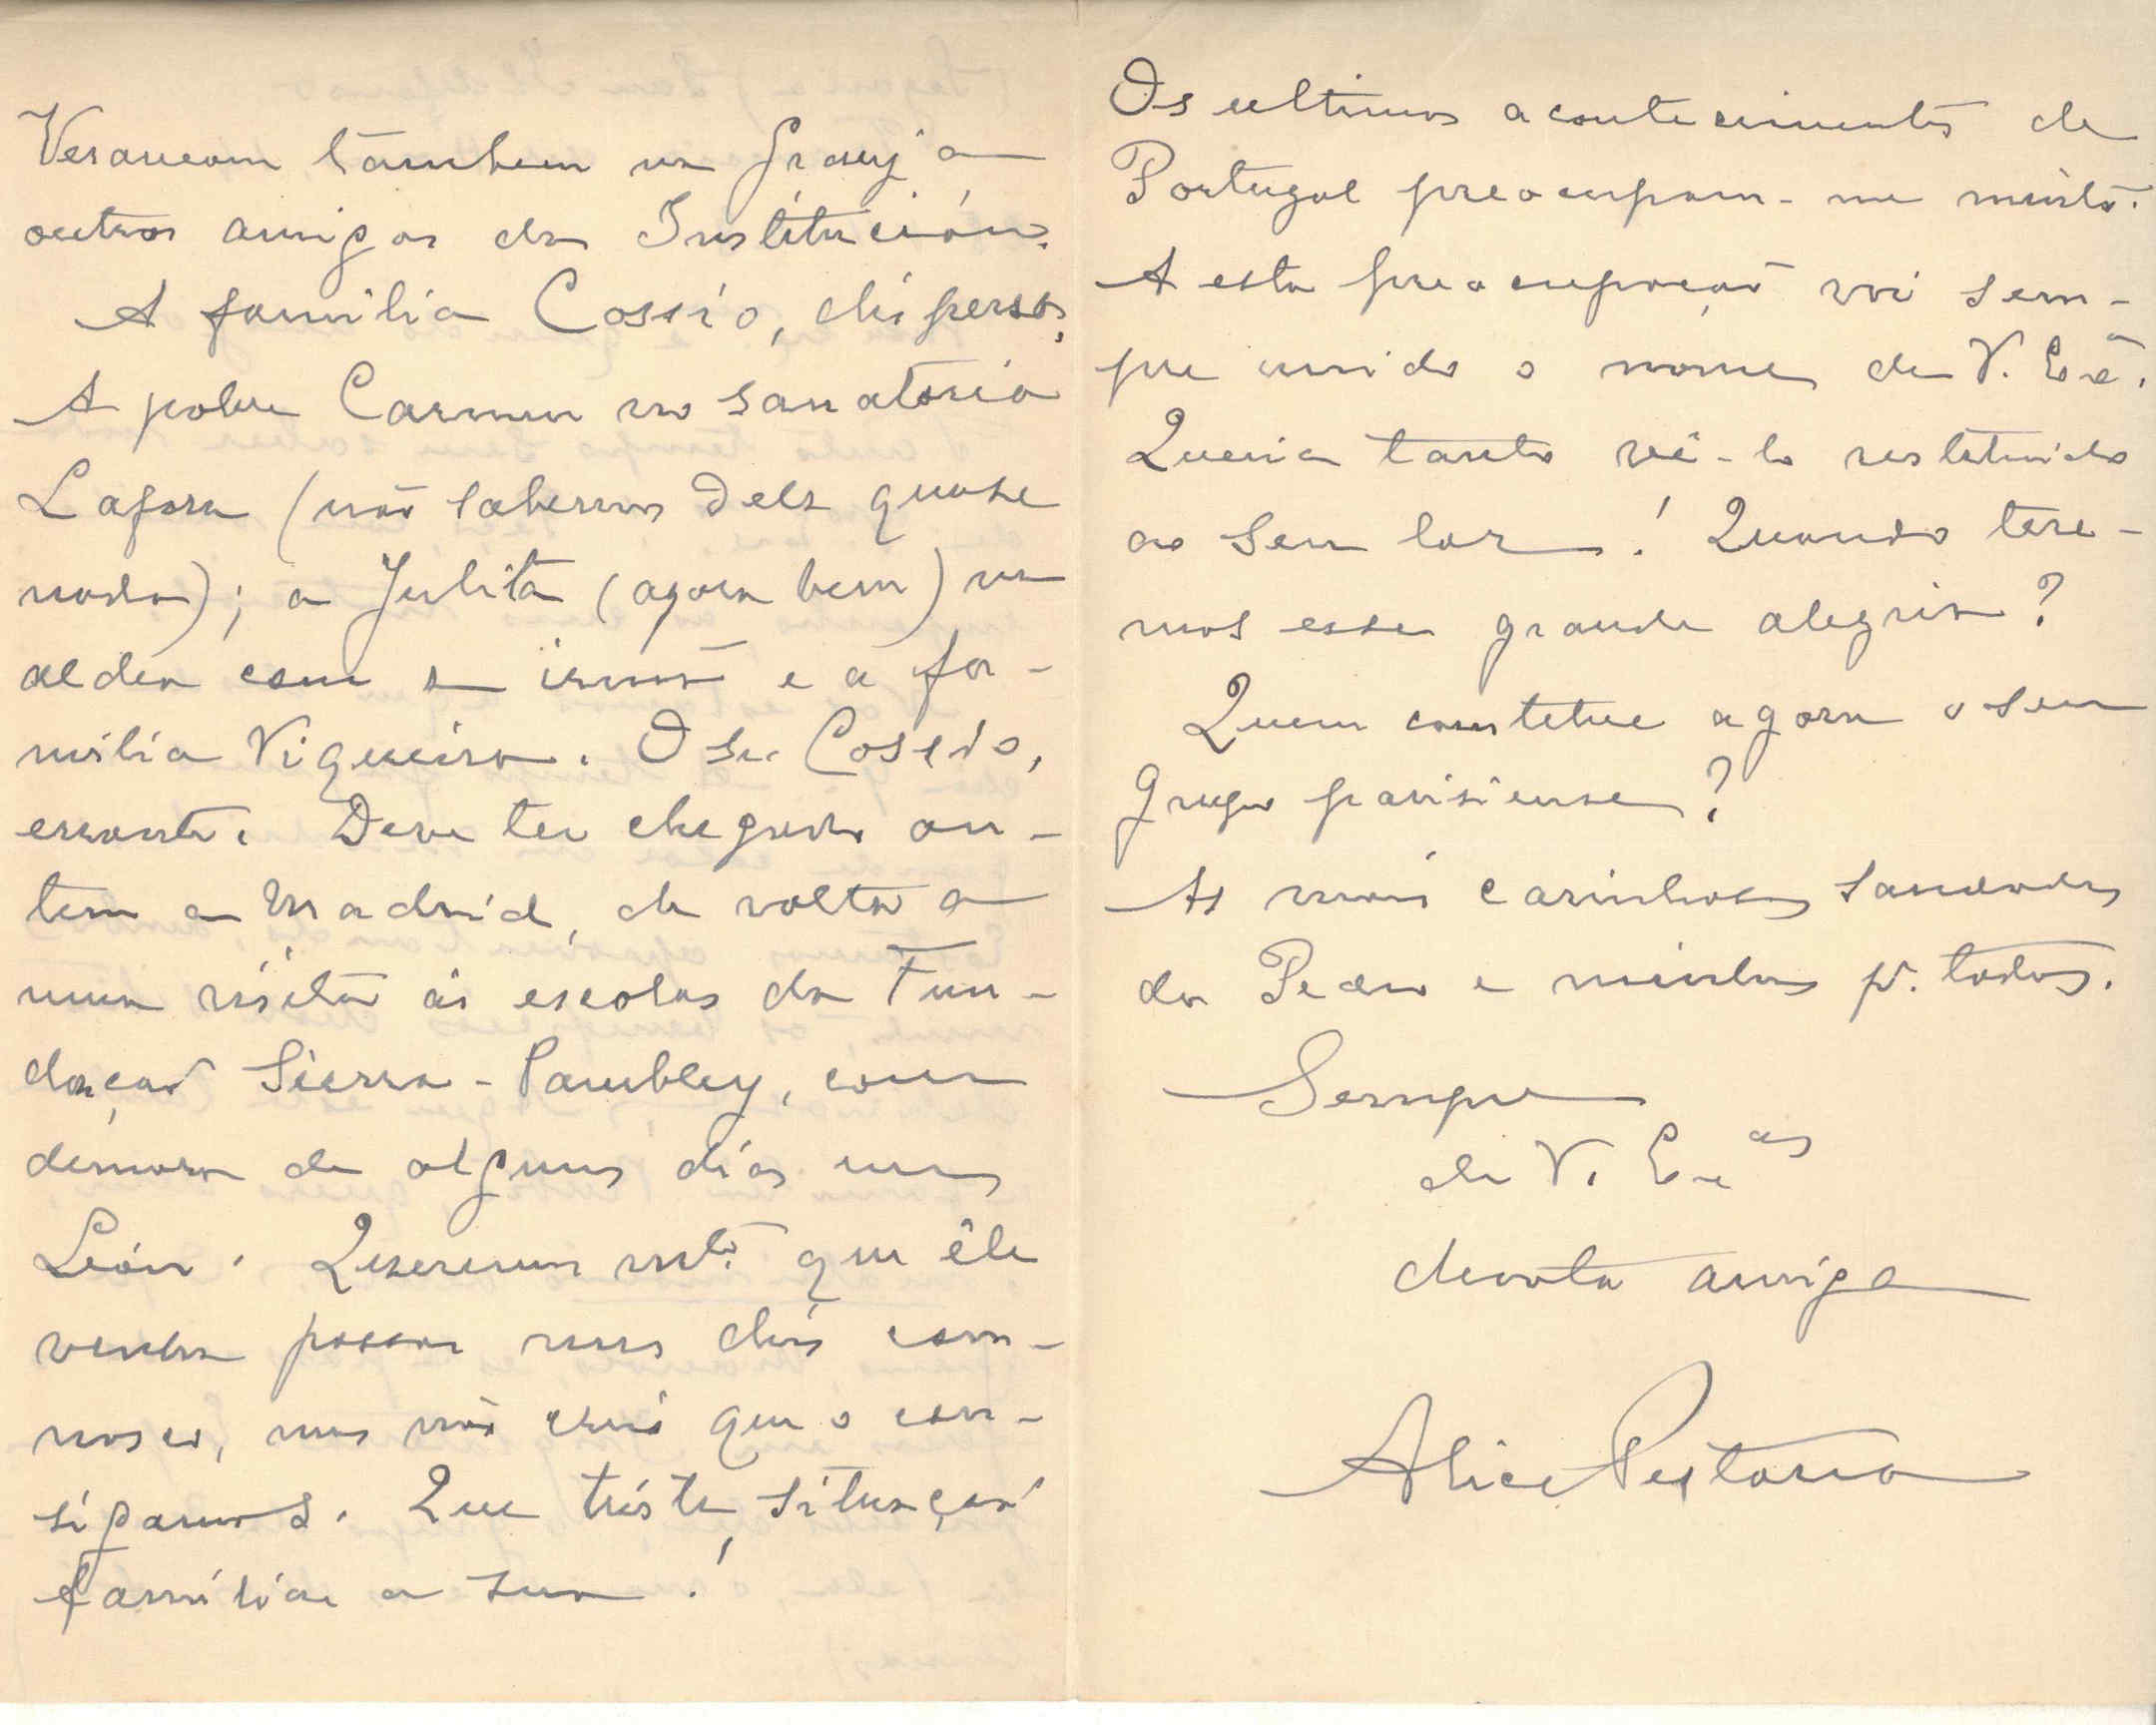 Veraneam tambem na Granja
outros amigos da Institución.
A familia Cossío, dispersa.
A pobre Carmen no sanatorio
Lafora (não sabemos dela quase
nada); a Julita (agora bem) na
aldea com a irmã e a fa-
milia Viqueira. O Sr. Cossío,
errante. Deve ter chegado on-
tem a Madrid, de volta a
uma visita ás escolas da Fun-
dação Sierra-Pambley, com
demora de alguns dias em
León. Quseremos mto. que êle
venha passar uns dias com-
nosco, mas não creio que o con-
sigamos. Que triste situação
familiar a sua!
Os ultimos acontecimentos de
Portugal preocupam-me muito.
A esta preocupação vai sem-
pre unido o nome de V. Exa.
Queria tanto vê-lo restituido
ao seu lar! Quando tere-
mos essa grande alegria?
Quem constitue agora o seu
grupo parisiense?
As mais carinhosas saudades
do Pedro e minhas p. todos.
Sempre
de V. Exas
devota amiga
Alice Pestana